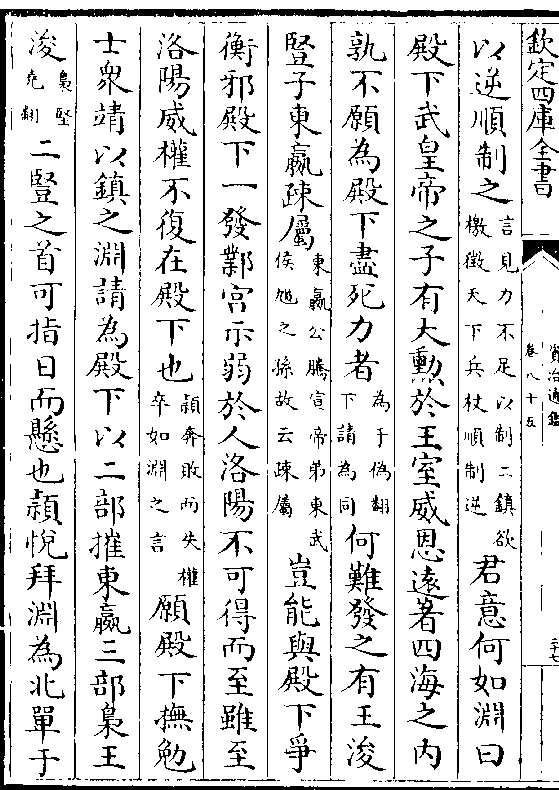 欽定四庫全書
資治通鑑
卷八十五
三十七
以逆順制之言見力不足以制二鎮欲檄徵天下兵杖順制逆君意何如淵曰
殿下武皇帝之子有大勲於王室威恩遠著四海之内
孰不願為殿下盡死力者為于偽翻下請為同何難發之有王浚
豎子東嬴疎屬東嬴公騰宣帝弟東武侯馗之孫故云疎屬豈能與殿下爭
衡邪殿下一發鄴宫示弱於人洛陽不可得而至雖至
洛陽威權不復在殿下也穎奔敗而失權卒如淵之言願殿下撫勉
士衆靖以鎮之淵請為殿下以二部摧東嬴三部梟王
浚梟堅堯翻二豎之首可指日而懸也穎悅拜淵為北單于